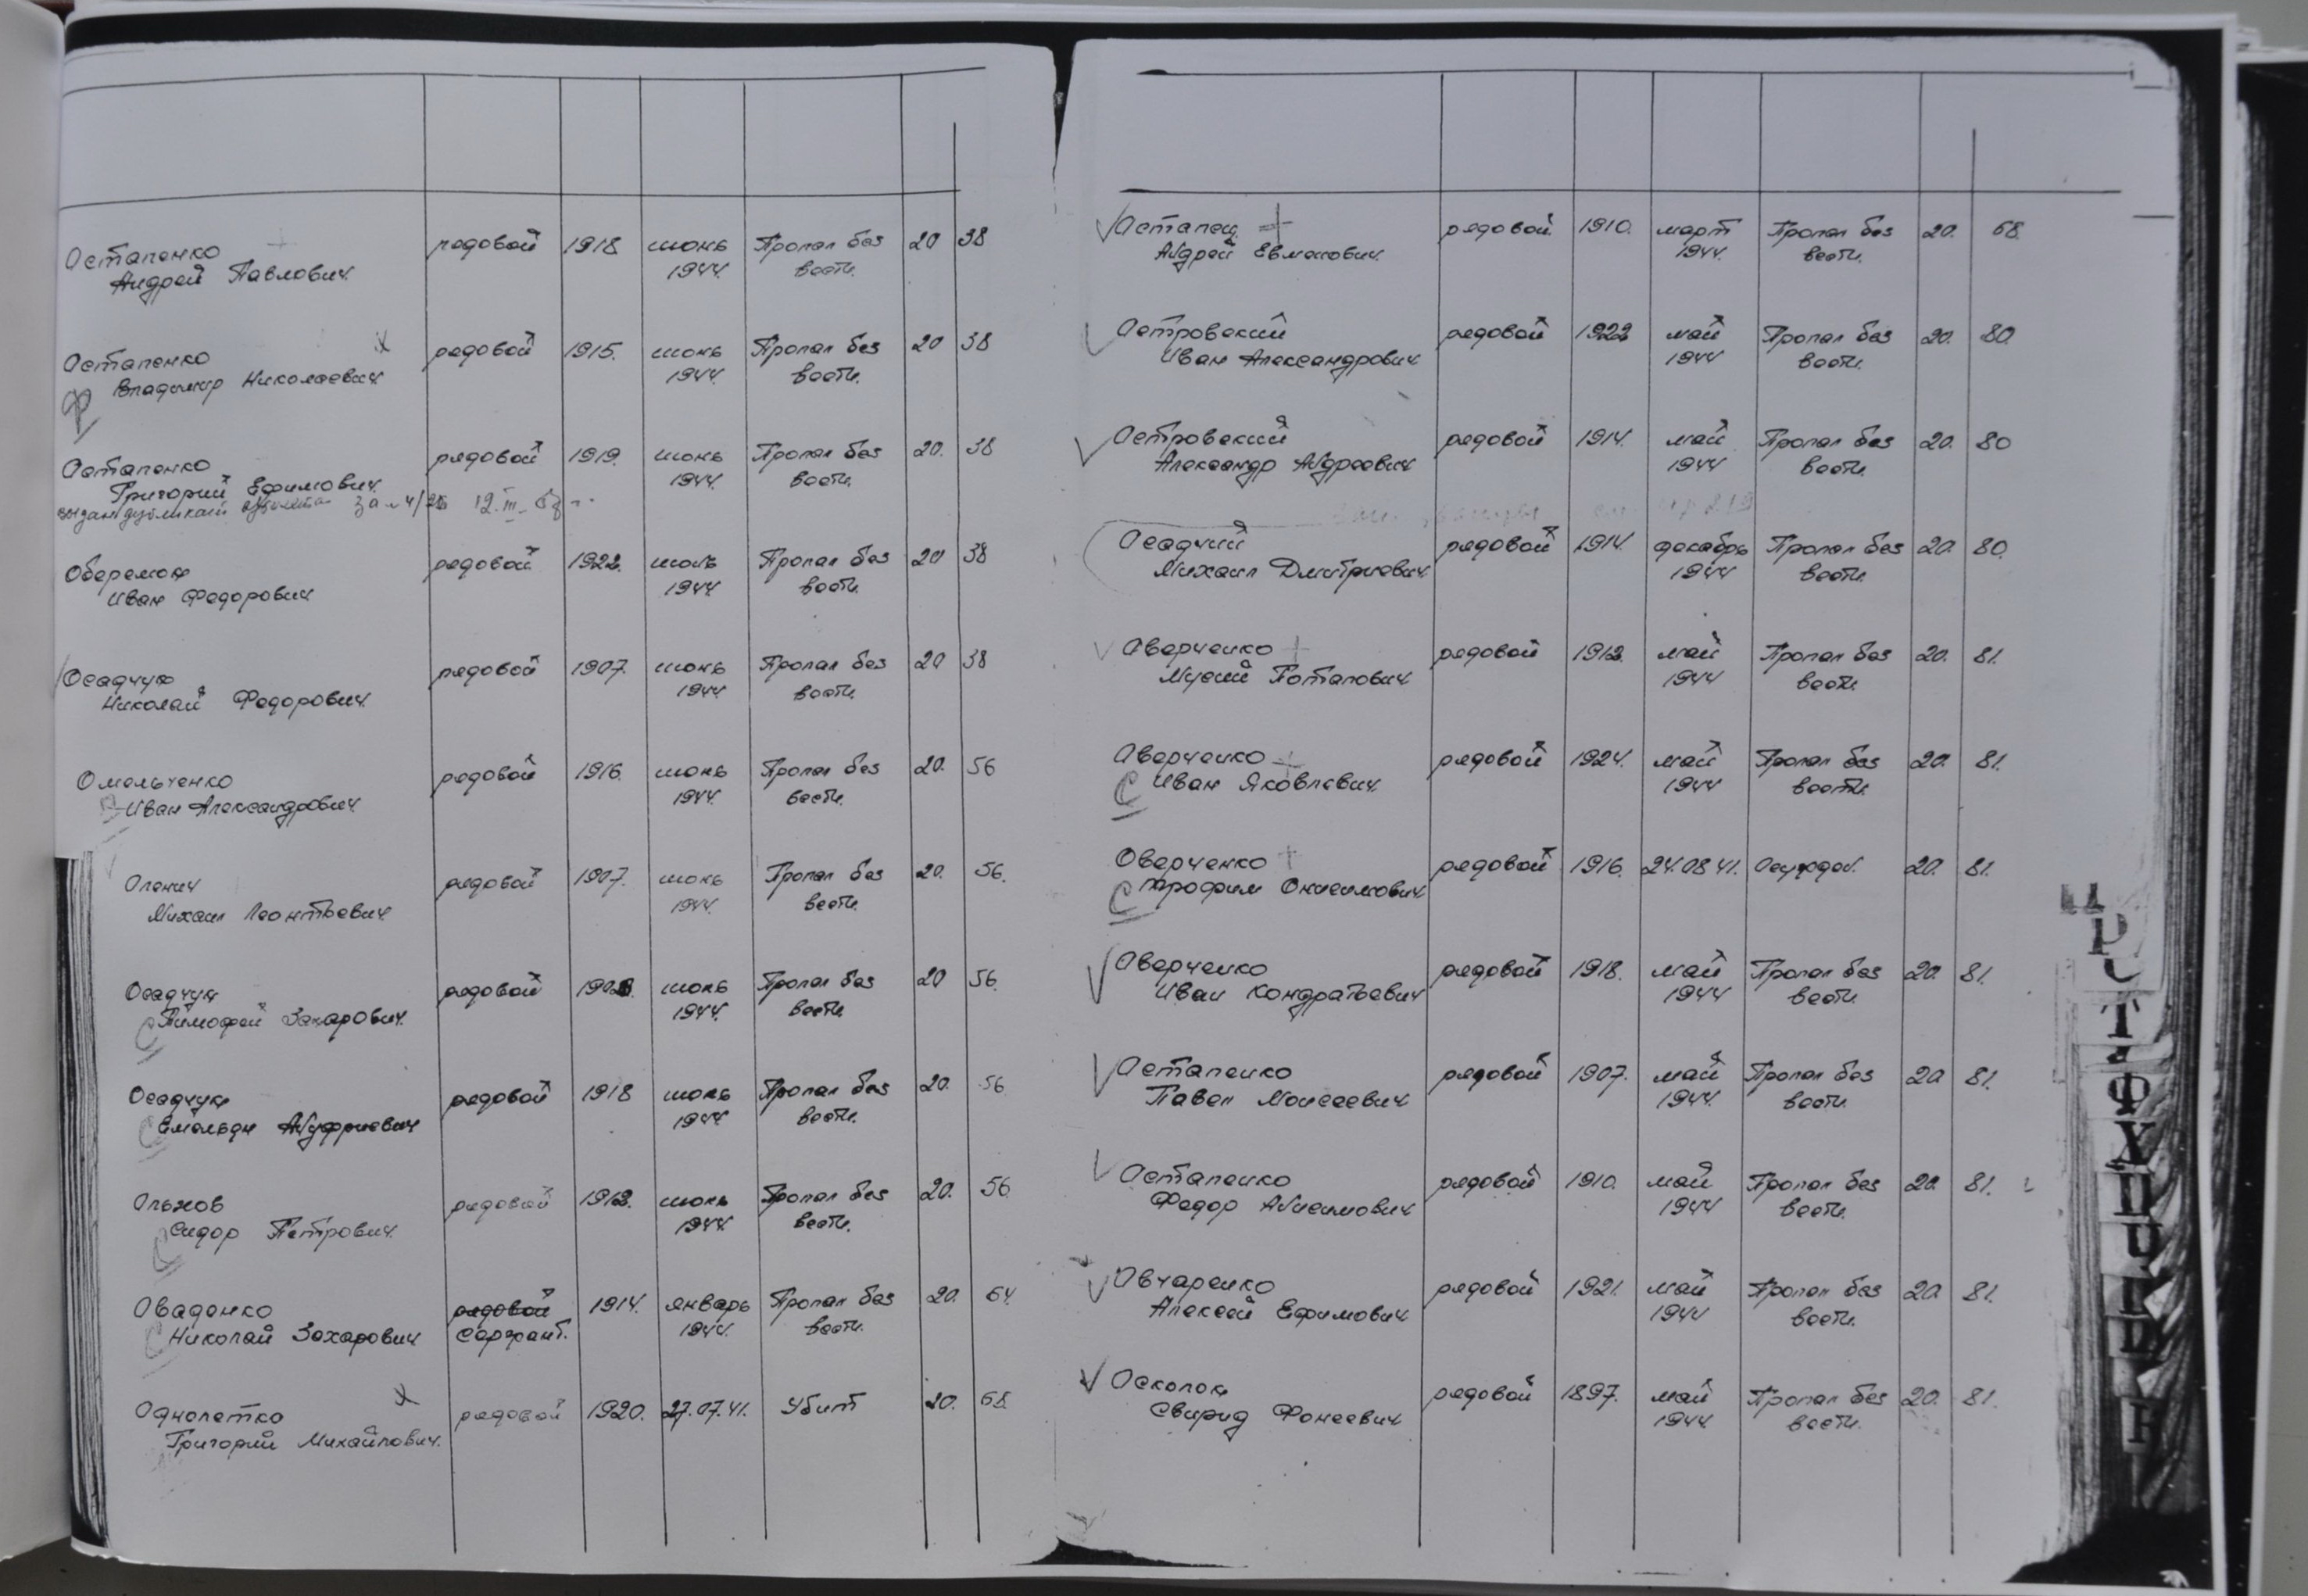 Остапенко рядовой 1918 июнь Пропал без 20 38
Андрей Павлович 1944 вести.
Остапенко рядовой 1915. июнь Пропал без 20 38
Владимир Николаевич 1944. вести.
Ф
Остапенко рядовой 1919. июнь Пропал без 20. 38
Григорий Ефимович 1944. вести.
выдан дубликат 12.III.
Оберемок рядовой 1922. Пропал без 20 38
Иван Федорович 1944. вести.
Осадчук рядовой 1907. июнь Пропал без 20 38
Николай Федорович 1944. вести.
Омельченко рядовой 1916. июнь Пропал без 20. 56
Иван Александрович 1944. вести.
Оленич рядовой 1907. июнь Пропал без 20. 56.
Михаил Леонтьевич 1944. вести.
Осадчук рядовой июнь Пропал без 20 56.
С Тимофей Захарович 1944. вести.
Осадчук рядовой 1918 июнь Пропал без 20. 56
С Емельян Ануфриевич 1944 вести.
Ольхов рядовой июнь Пропал без 20. 56
С Сидор Петрович 1944. вести.
Оваденко рядовой 1914. январь Пропал без 20. 64.
С Николай Захарович сержант. 1944. вести.
Однолетко рядовой 1920. 27.07.41. Убит 20. 68.
Григорий Михайлович.
Остапец рядовой 1910. март Пропал без 20. 68.
Андрей Евменович 1944. вести.
Островский рядовой май Пропал без 20. 80.
Иван Александрович 1944 вести.
Островский рядовой 1914. май Пропал без 20. 80
Александр Андреевич 1944 вести.
Осадчий рядовой 1914. декабрь Пропал без 20 80.
Михаил Дмитриевич 1944 вести.
Оверченко рядовой май Пропал без 20. 81.
Мусий Потапович 1944 вести.
Оверченко рядовой 1924. май Пропал без 20. 81.
С Иван Яковлевич 1944 вести.
Оверченко рядовой 1916. 24.08.41. Осужден. 20. 81.
С Трофим Онисимович
Оверченко рядовой 1918. май Пропал без 20. 81.
Иван Кондратьевич 1944 вести.
Остапенко рядовой 1907. май Пропал без 20 81.
Павел Моисеевич 1944. вести.
Остапенко рядовой 1910. май Пропал без 20. 81.
Федор Анисимович 1944 вести.
Овчаренко рядовой 1921. май Пропал без 20. 81.
Алексей Ефимович 1944 вести.
Осколок рядовой 1897. май Пропал без 20. 81.
Свирид Фонеевич 1944 вести.
Р
С
Т
Ф
Х